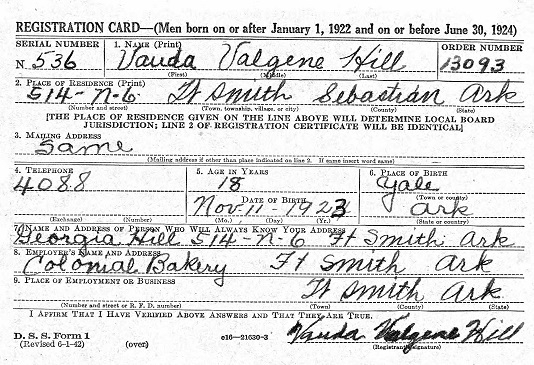 REGISTRATION CARD—(Men born on or after January 1, 1922 and on or before June 30, 1924)
SERIAL NUMBER 1. NAME (Print) ORDER NUMBER
N. 536 Vauda Valgene Hill 13093
(First) (Middle) (Last)
2. PLACE OF RESIDENCE (Print)
514-N-6 Ft Smith Sebastian Ark
(Number and street) (Town, township, village, or city) (County) (State)
[THE PLACE OF RESIDENCE GIVEN ON THE LINE ABOVE WILL DETERMINE LOCAL BOARD
JURISDICTION; LINE 2 OF REGISTRATION CERTIFICATE WILL BE IDENTICAL]
3. MAILING ADDRESS
Same
(Mailing address if other than place indicated on line 2. If same insert word same)
4. TELEPHONE 5. AGE IN YEARS 6. PLACE OF BIRTH
4088 18 Yale
DATE OF BIRTH (Town or county)
Nov-11-1923 Ark
(Exchange) (Number) (Mo.) (Day) (Yr.) (State or country)
7. NAME AND ADDRESS OF PERSON WHO WILL ALWAYS KNOW YOUR ADDRESS
Georgia Hill 514-N-6 Ft Smith Ark
8. EMPLOYER'S NAME AND ADDRESS
Colonial Bakery Ft Smith Ark
9. PLACE OF EMPLOYMENT OR BUSINESS
Ft Smith Ark
(Number and street or R. F. D. number) (Town) (County) (State)
I AFFIRM THAT I HAVE VERIFIED ABOVE ANSWERS AND THAT THEY ARE TRUE.
D. S. S. Form 1
(Revised 6-1-42) (over) c16—21630-3 Vauda Valgene Hill
(Registrant's signature)